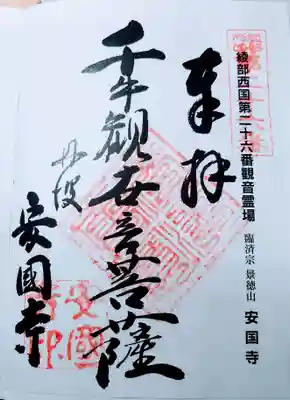 綾部西国第二十六番観音霊場 臨済宗 景徳山 安国寺
奉拝
千手観世音菩薩
丹波
安國寺
安國
寺印